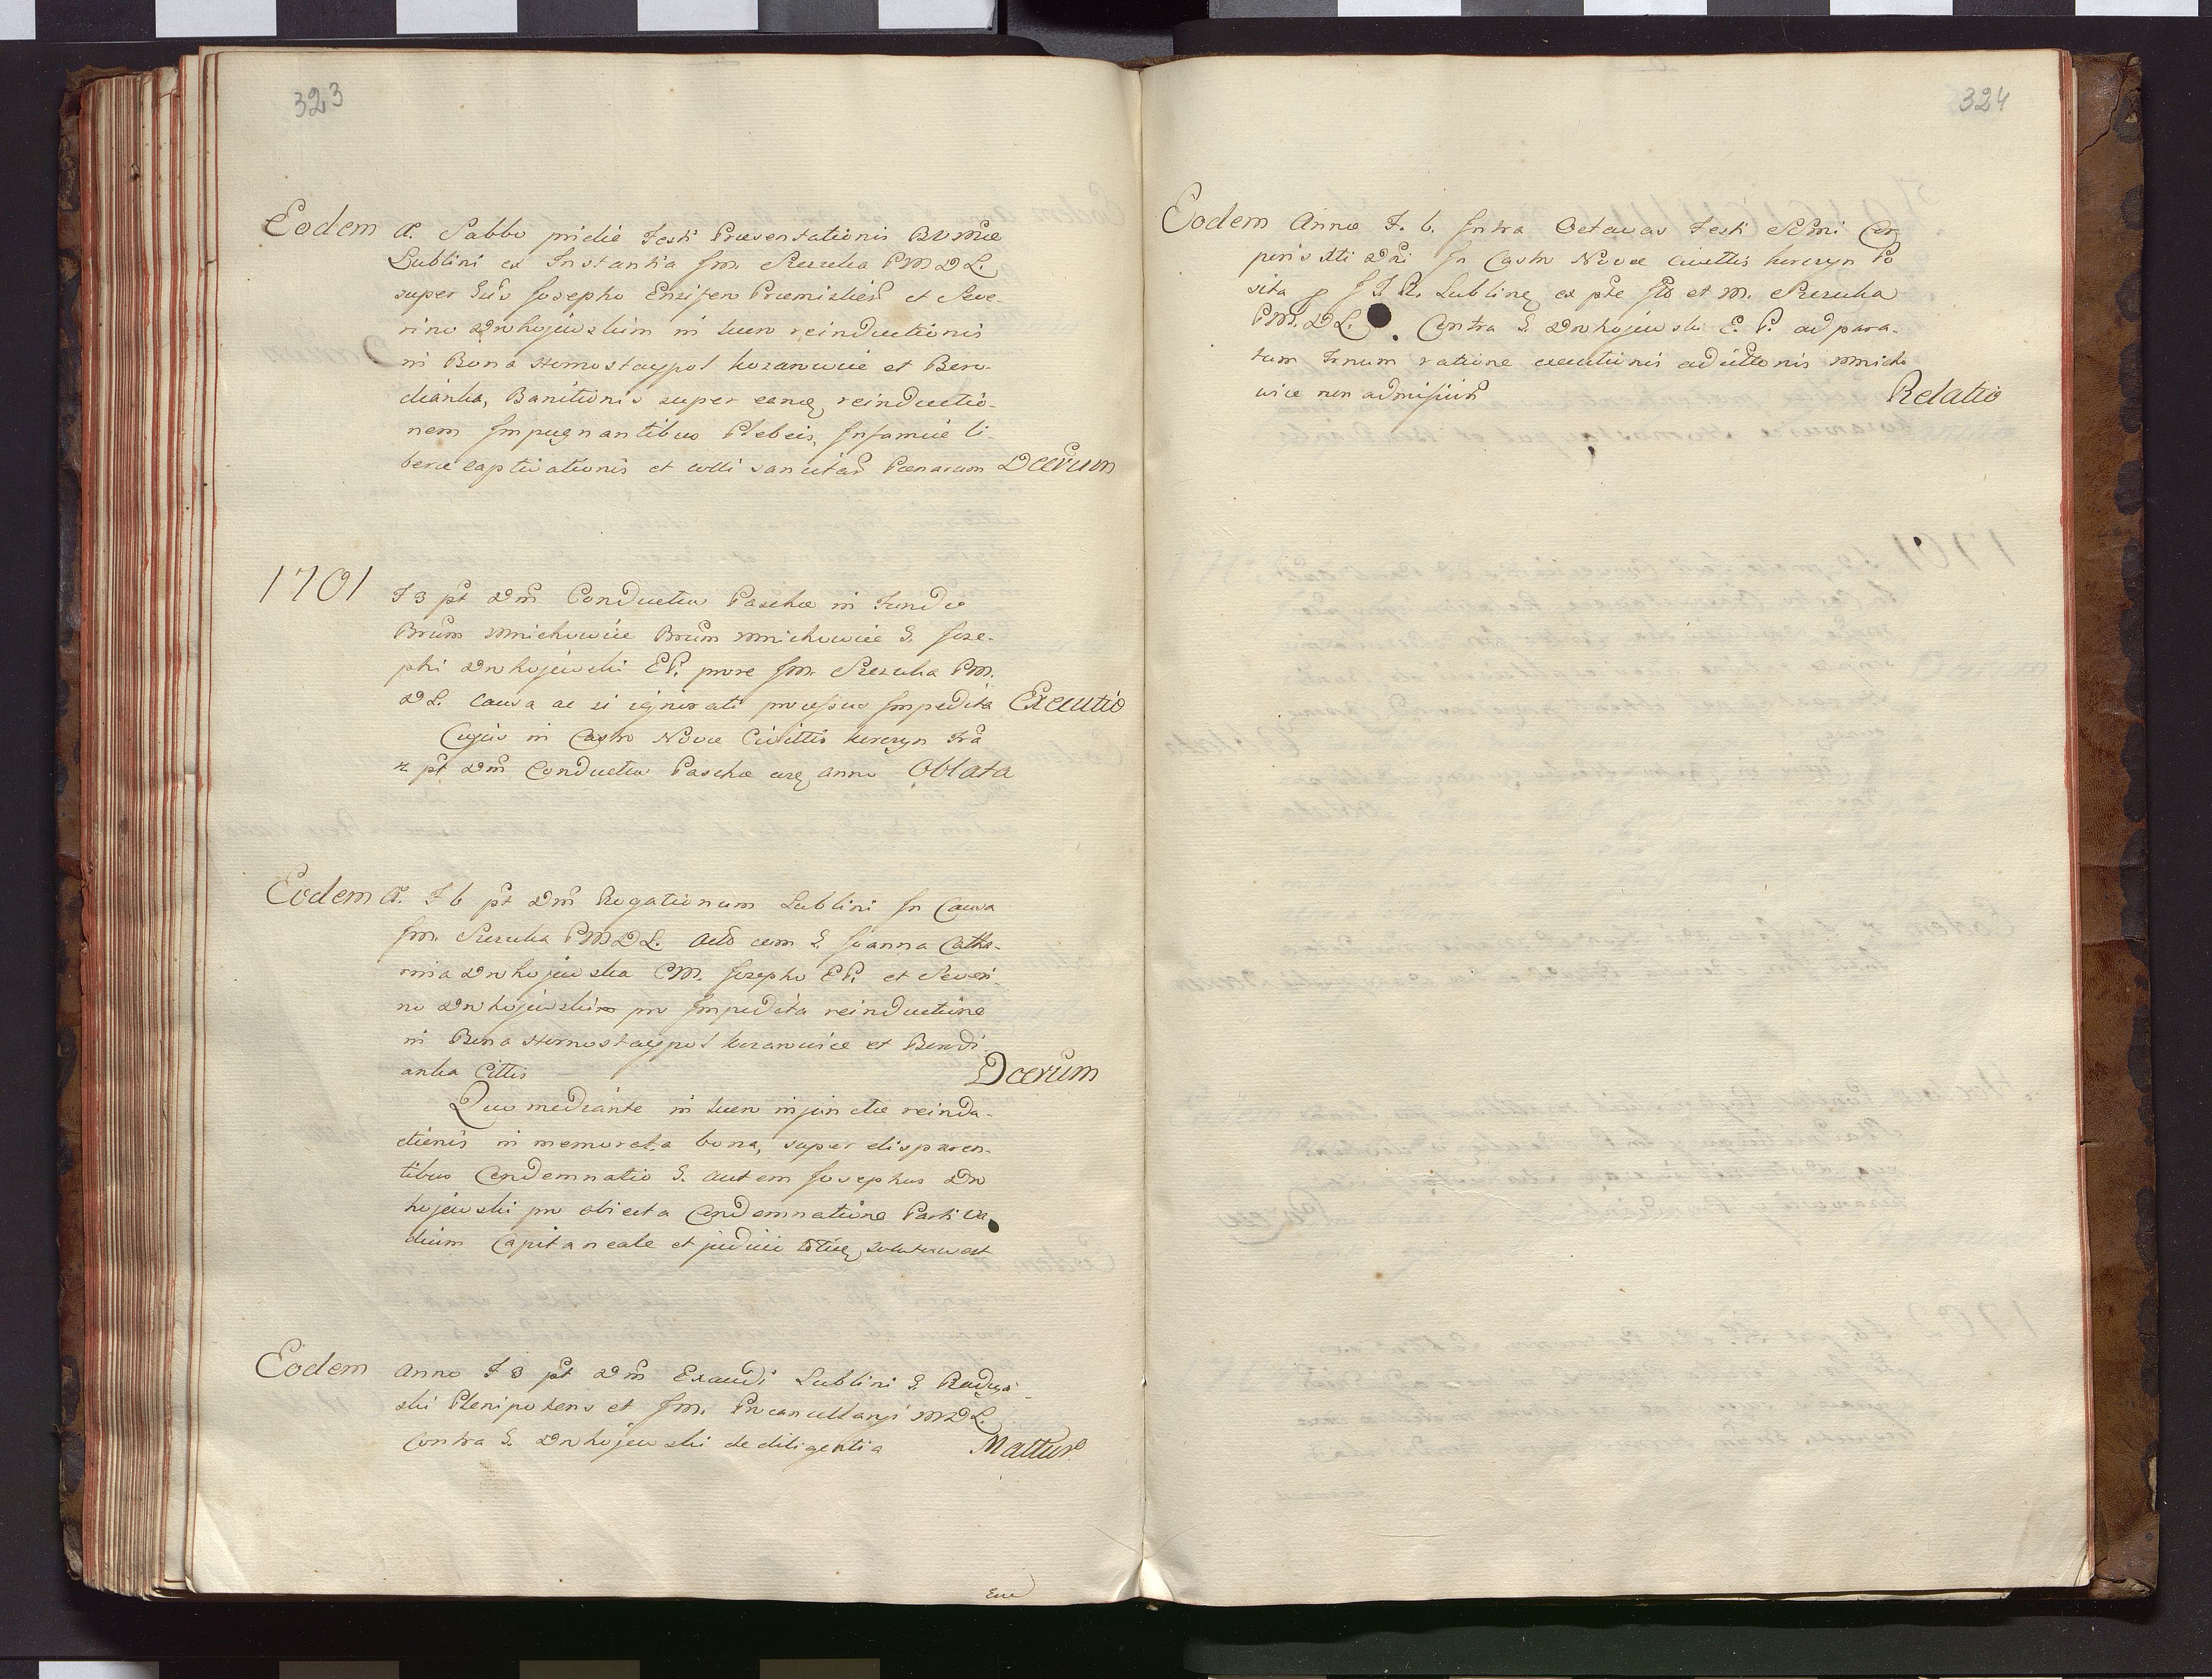 323
Eodem A. Sabbo pridie Festi Præsentationis BVMæ
Lublini ex Instantia Jm. Szczuka PMDL.
super Gūs Josepho Ensifero Præmislien̄ et Seve-
rino Drohojewskim in luen reinductionis
in Bona Hornostaypol Kozarowice et Boro-
dianka, Banitionis super eamq reinductio-
nem Impugnantibus Plebeis, Infamiæ li-
beræ captivationis et colli sancitar̄ Poenarum Dcērum
1701 F 3 pt Dm̄ Conductus Paschæ in Fundo
Bnūm Mnichowice Bnūm Mnichowice G. Jose-
phi Drohojewski EP. prore Jm. Szczuka PM.
DL. Causa ac si ignorati processus Impedita Executio
Cujus in Castro Novæ Civittis Korczyn Frā
4 pt Dm̄ Conductus Paschæ eoq anno Oblata
Eodem A. F 6 pt Dm̄ Rogationum Lublini In Causa
Jm. Szczuka PMDL. Acto cum G. Joanna Catha-
rina Drohojewska CM. Josepho EP. et Severi-
no Drohojewskim pro Impedita reinductione
in Bona Hornostaypol Kozarowice et Borodi
anka Cittis Dcērum
Quo mediante in luen injunctæ reindu-
ctionis in memorata bona, super disparen-
tibus Condemnatio G. autem Josephus Dro
hojewski pro objecta Condemnatione Parti va
dium Capitaneale et judicio totūq soluturus est
Eodem Anno F 3 pt Dm̄ Exaudi Lublini G. Radzyi-
ski Plenipotens et Jm. Procancellarii MDL.
Contra G. Drohojewski de diligentia Mattur̄
324
Eodem Anno F. 6. Intra Octavas Festi SSmi Cor
poris Xti Dni In Castro Novæ Civittis Korczyn Po
sita p J J R. Lublineq ex pte Jlo et M. Szczuka
PM. DL. Contra G. Drohojewski E. P. ad para-
tum Frnum ratione executionis adcittonis Mnicho
wice non admissiūn̄ Relatio